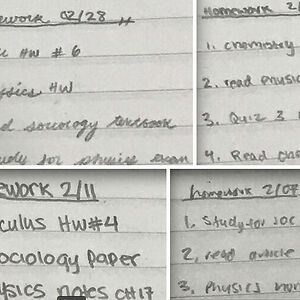 ework 02/28
c HW # 6
sics HW
d sociology textbook
udy for physics exam
Homework 2/
1. chemistry
2. read physic
3. Quiz 3
4. Read cha
ework 2/11
culus HW#4
ociology Paper
ysics notes CH 17
homework 2/07
1. Study for soc
2. read article
3. Physics